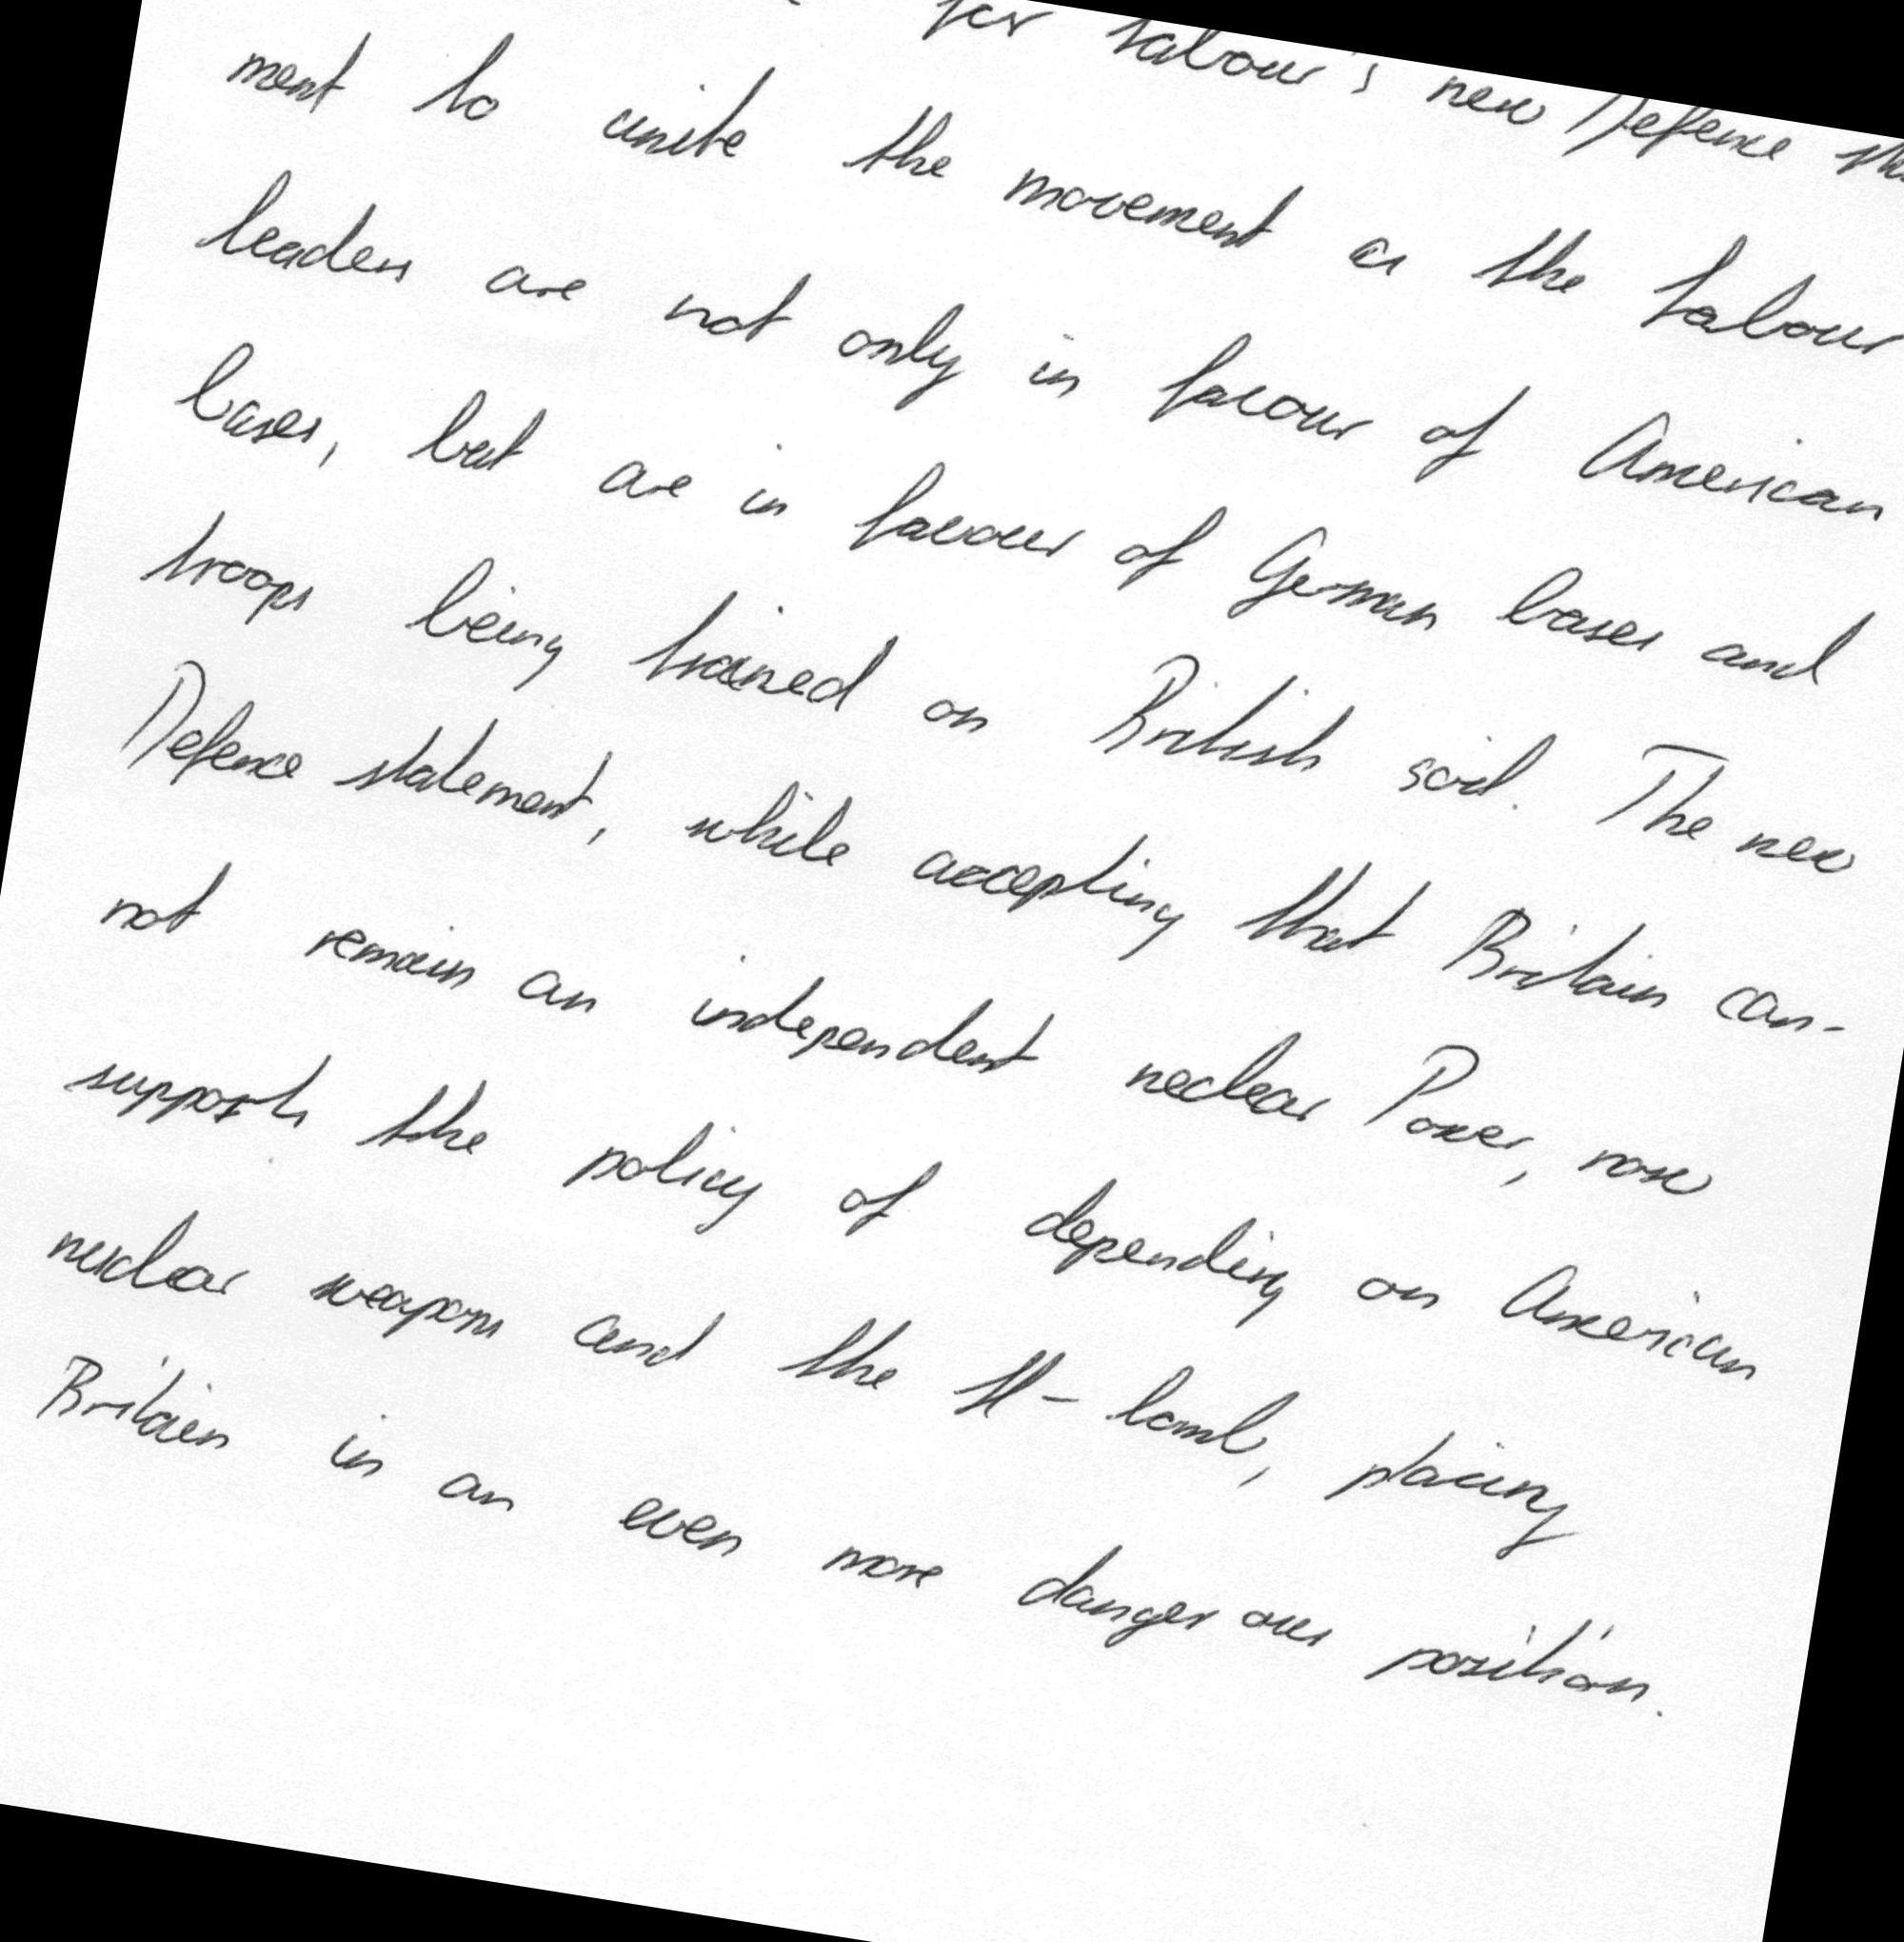 for Labour's new Defence
ment to unite the movement as the Labour
leaders are not only in favour of American
bases, but are in favour of German bases and
troops being trained on British soil. The new
Defence statement, while accepting that Britain can-
not remain an independent nuclear Power, now
supports the policy of depending on American
nuclear weapons and the H-bomb, placing
Britain in an even more dangerous position.